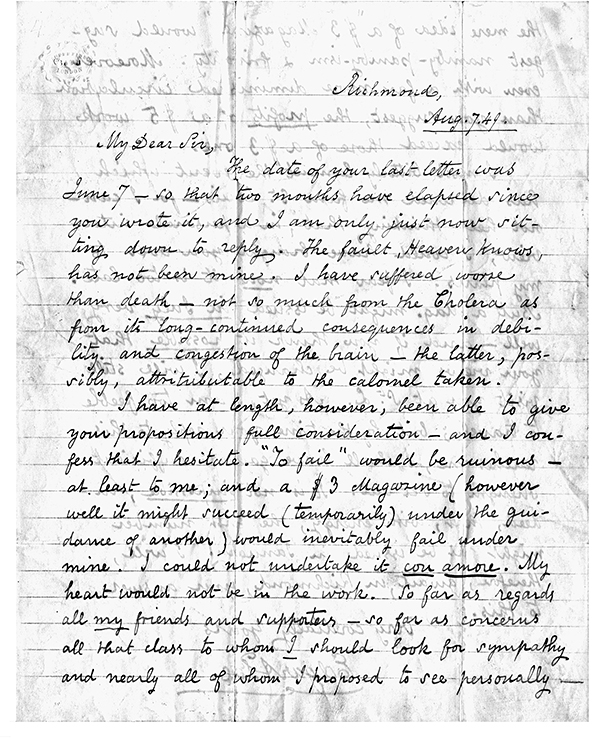 Richmond,
Aug. 7. 49.
My Dear Sir,
The date of your last letter was
June 7 — so that two months have elapsed since
you wrote it, and I am only just now sit-
ting down to reply. The fault, Heaven knows,
has not been mine. I have suffered worse
than death — not so much from the Cholera as
from its long-continued consequences in debi-
lity and congestion of the brain — the latter, pos-
sibly, attritributable to the calomel taken.
I have at length, however, been able to give
your propositions full consideration — and I con-
fess that I hesitate. "To fail" would be ruinous —
at least to me; and a $3 Magazine (however
well it might succeed (temporarily) under the gui-
dance of another) would inevitably fail under
mine. I could not undertake it con amore. My
heart would not be in the work. So far as regards
all my friends and supporters — so far as concerns
all that class to whom I should look for sympathy
and nearly all of whom I proposed to see personally —